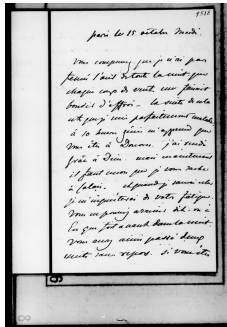 1532
paris les 15 octobre Mardi.
Vous comprenez que je n'ai pas
fermé l'œil de toute la nuit que
chaque corps de vent me faisait
bondir d'effroi. la suite de cela
est que je suis parfaitement malade
à 10 heures
vous êtes à Douvres. j'ai
grâce à Dieu. mais maintenant
il faut encore que je vous sache
à Calais. quand je saurai cela
je m'inquiéterai de votre fatigue.
Vous ne pouvez arriver dit-on à
que tout avant dans la nuit.
vous aurez ainsi passé deux
nuits sans repos. si vous êtes